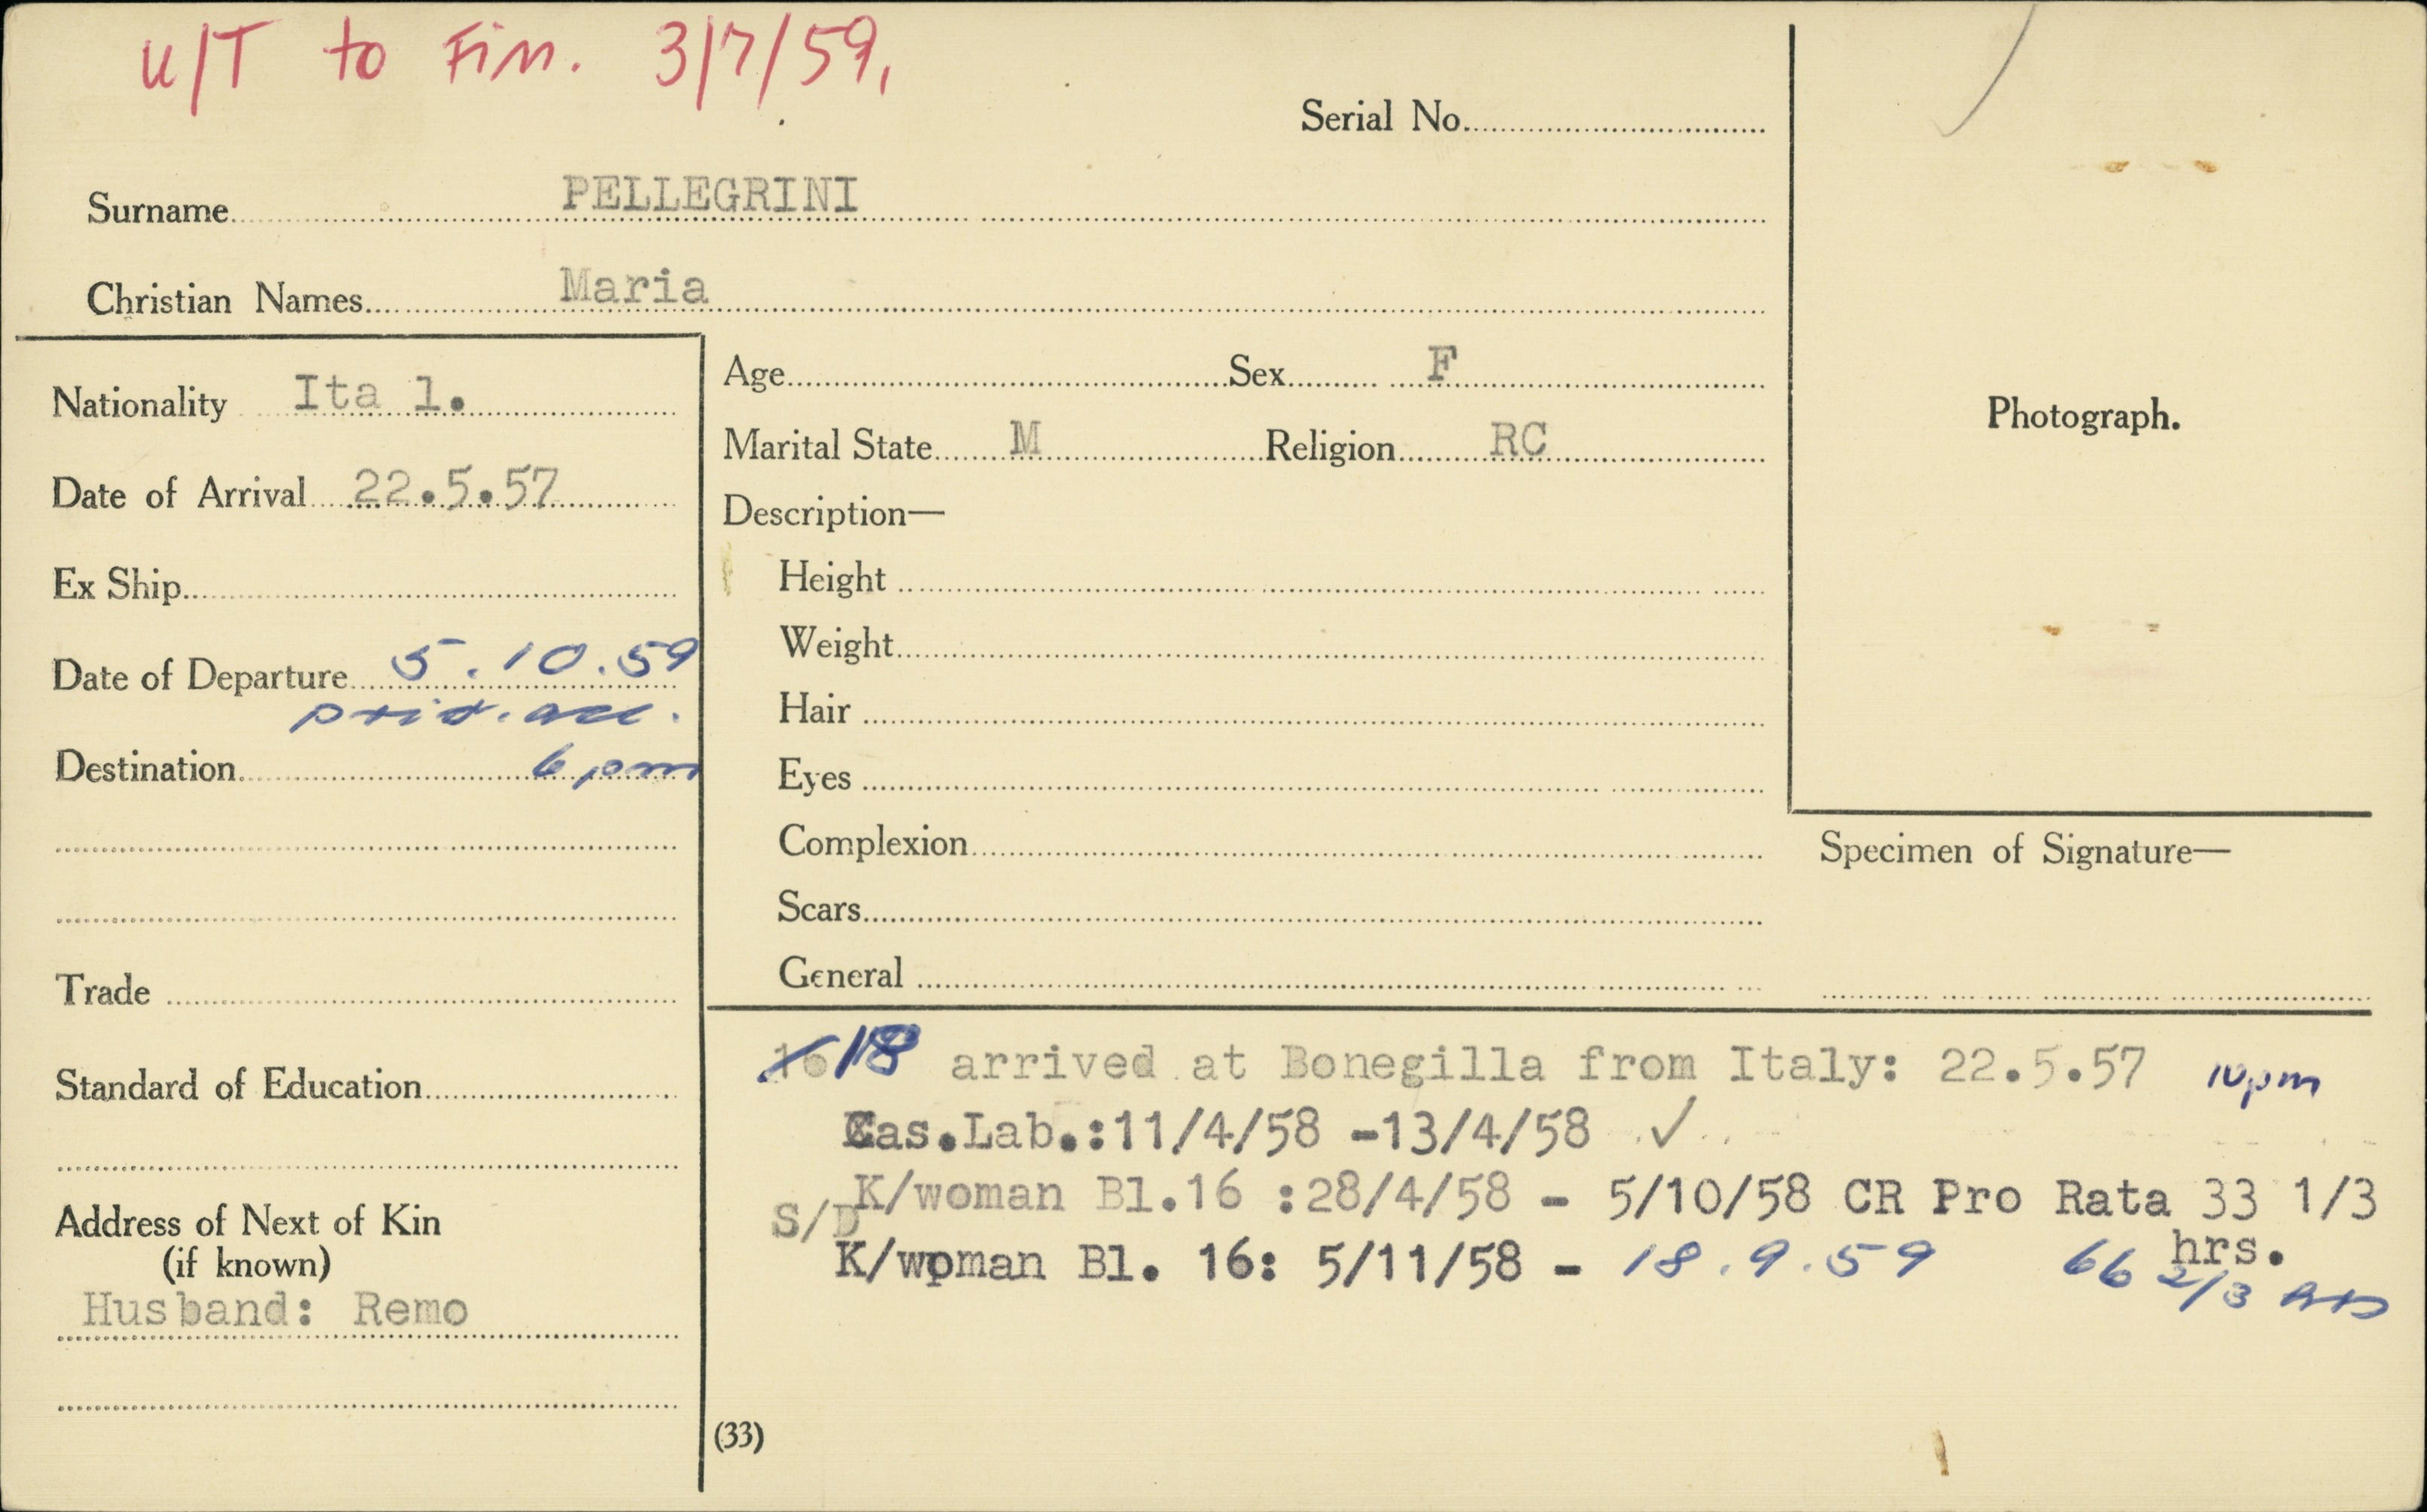 U/T to Fin. 3/7/59,
Serial No.
Surname PELLEGRINI
Christian Names Maria
Nationality Ita l.
Date of Arrival 22.5.57
Ex Ship
Date of Departure 5.10.59
priv. acc.
Destination 6 pm
Trade
Standard of Education
Address of Next of Kin
(if known)
Husband: Remo
Age Sex F
Marital State M Religion RC
Description—
Height
Weight
Hair
Eyes
Complexion
Scars
General
Photograph.
Specimen of Signature—
18 arrived at Bonegilla from Italy: 22.5.57 10pm
Cas.Lab.:11/4/58 -13/4/58 ✓
K/woman Bl.16 :28/4/58 - 5/10/58 CR Pro Rata 33 1/3
hrs.
S/D
K/woman Bl. 16: 5/11/58 - 18.9.59 66 2/3
(33)